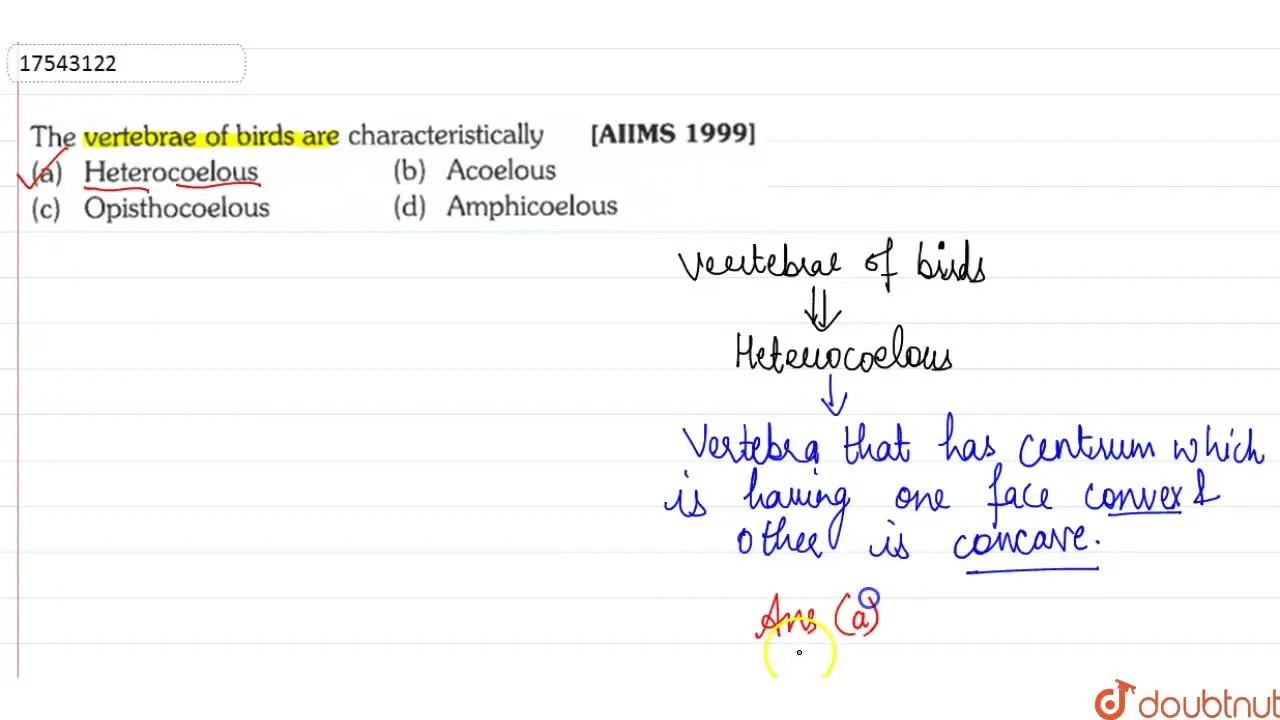 17543122
The vertebrae of birds are characteristically [AIIMS 1999]
(a) Heterocoelous (b) Acoelous
(c) Opisthocoelous (d) Amphicoelous
Vertebrae of birds
Heterocoelous
Vertebra that has centrum which
is having one face convex &
other is concave.
Ans (a)
doubtnut